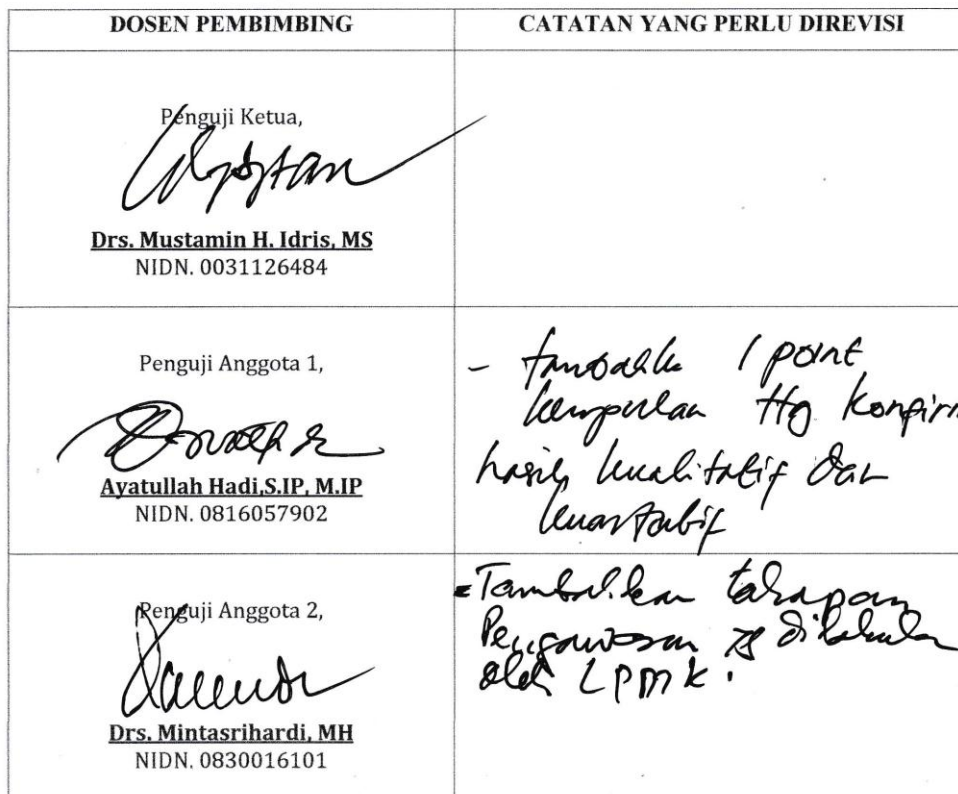 DOSEN PEMBIMBING
CATATAN YANG PERLU DIREVISI
Penguji Ketua,
Drs. Mustamin H. Idris, MS
NIDN. 0031126484
Penguji Anggota 1,
Ayatullah Hadi,S.IP, M.IP
NIDN. 0816057902
- 1 point
Hg
hasil kualitatif dan
Penguji Anggota 2,
Drs. Mintasrihardi, MH
NIDN. 0830016101
Tambahkan tahapan
Pengawasan yg dilakukan
oleh LPMK.